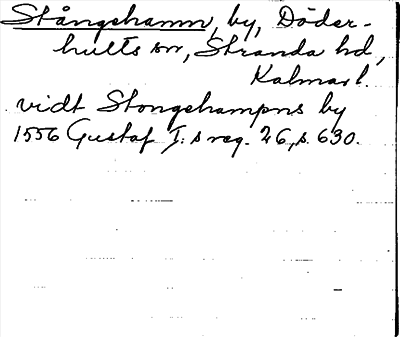 Stångehamn, by, Döder-
hults sn, Stranda hd,
Kalmar l.
vidt Stongehampns by
1556 Gustaf I:s reg. 26, s. 630.